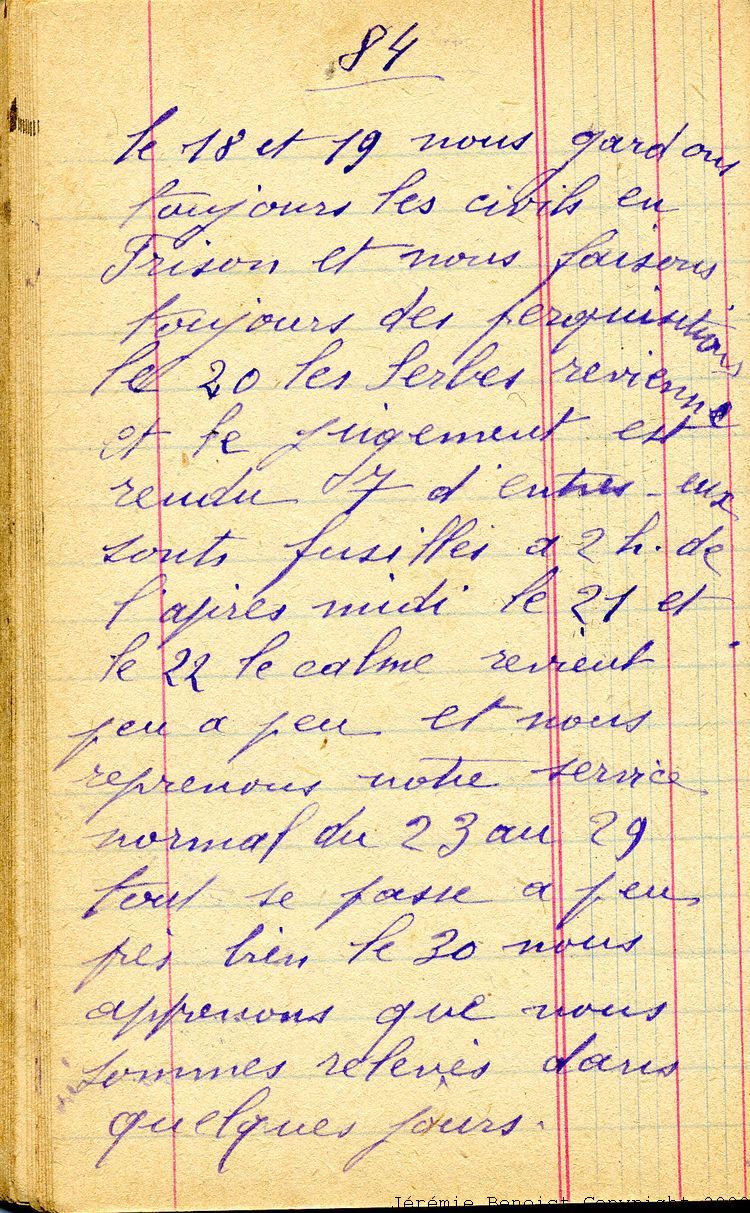 84
le 18 et 19 nous gardons
toujours les civils en
Prison et nous faisons
toujours des perquisitions
le 20 les Serbes revienne
et le jugement est
rendu 7 d'entres-eux
sonts fusillés a 2 h. de
l'apres midi le 21 et
le 22 le calme revient
peu a peu et nous
reprenons notre service
normal du 23 au 29
tout se passe a peu
près bien le 30 nous
apprenons que nous
sommes relevés dans
quelques jours.
Jérémie Benoist Copyright